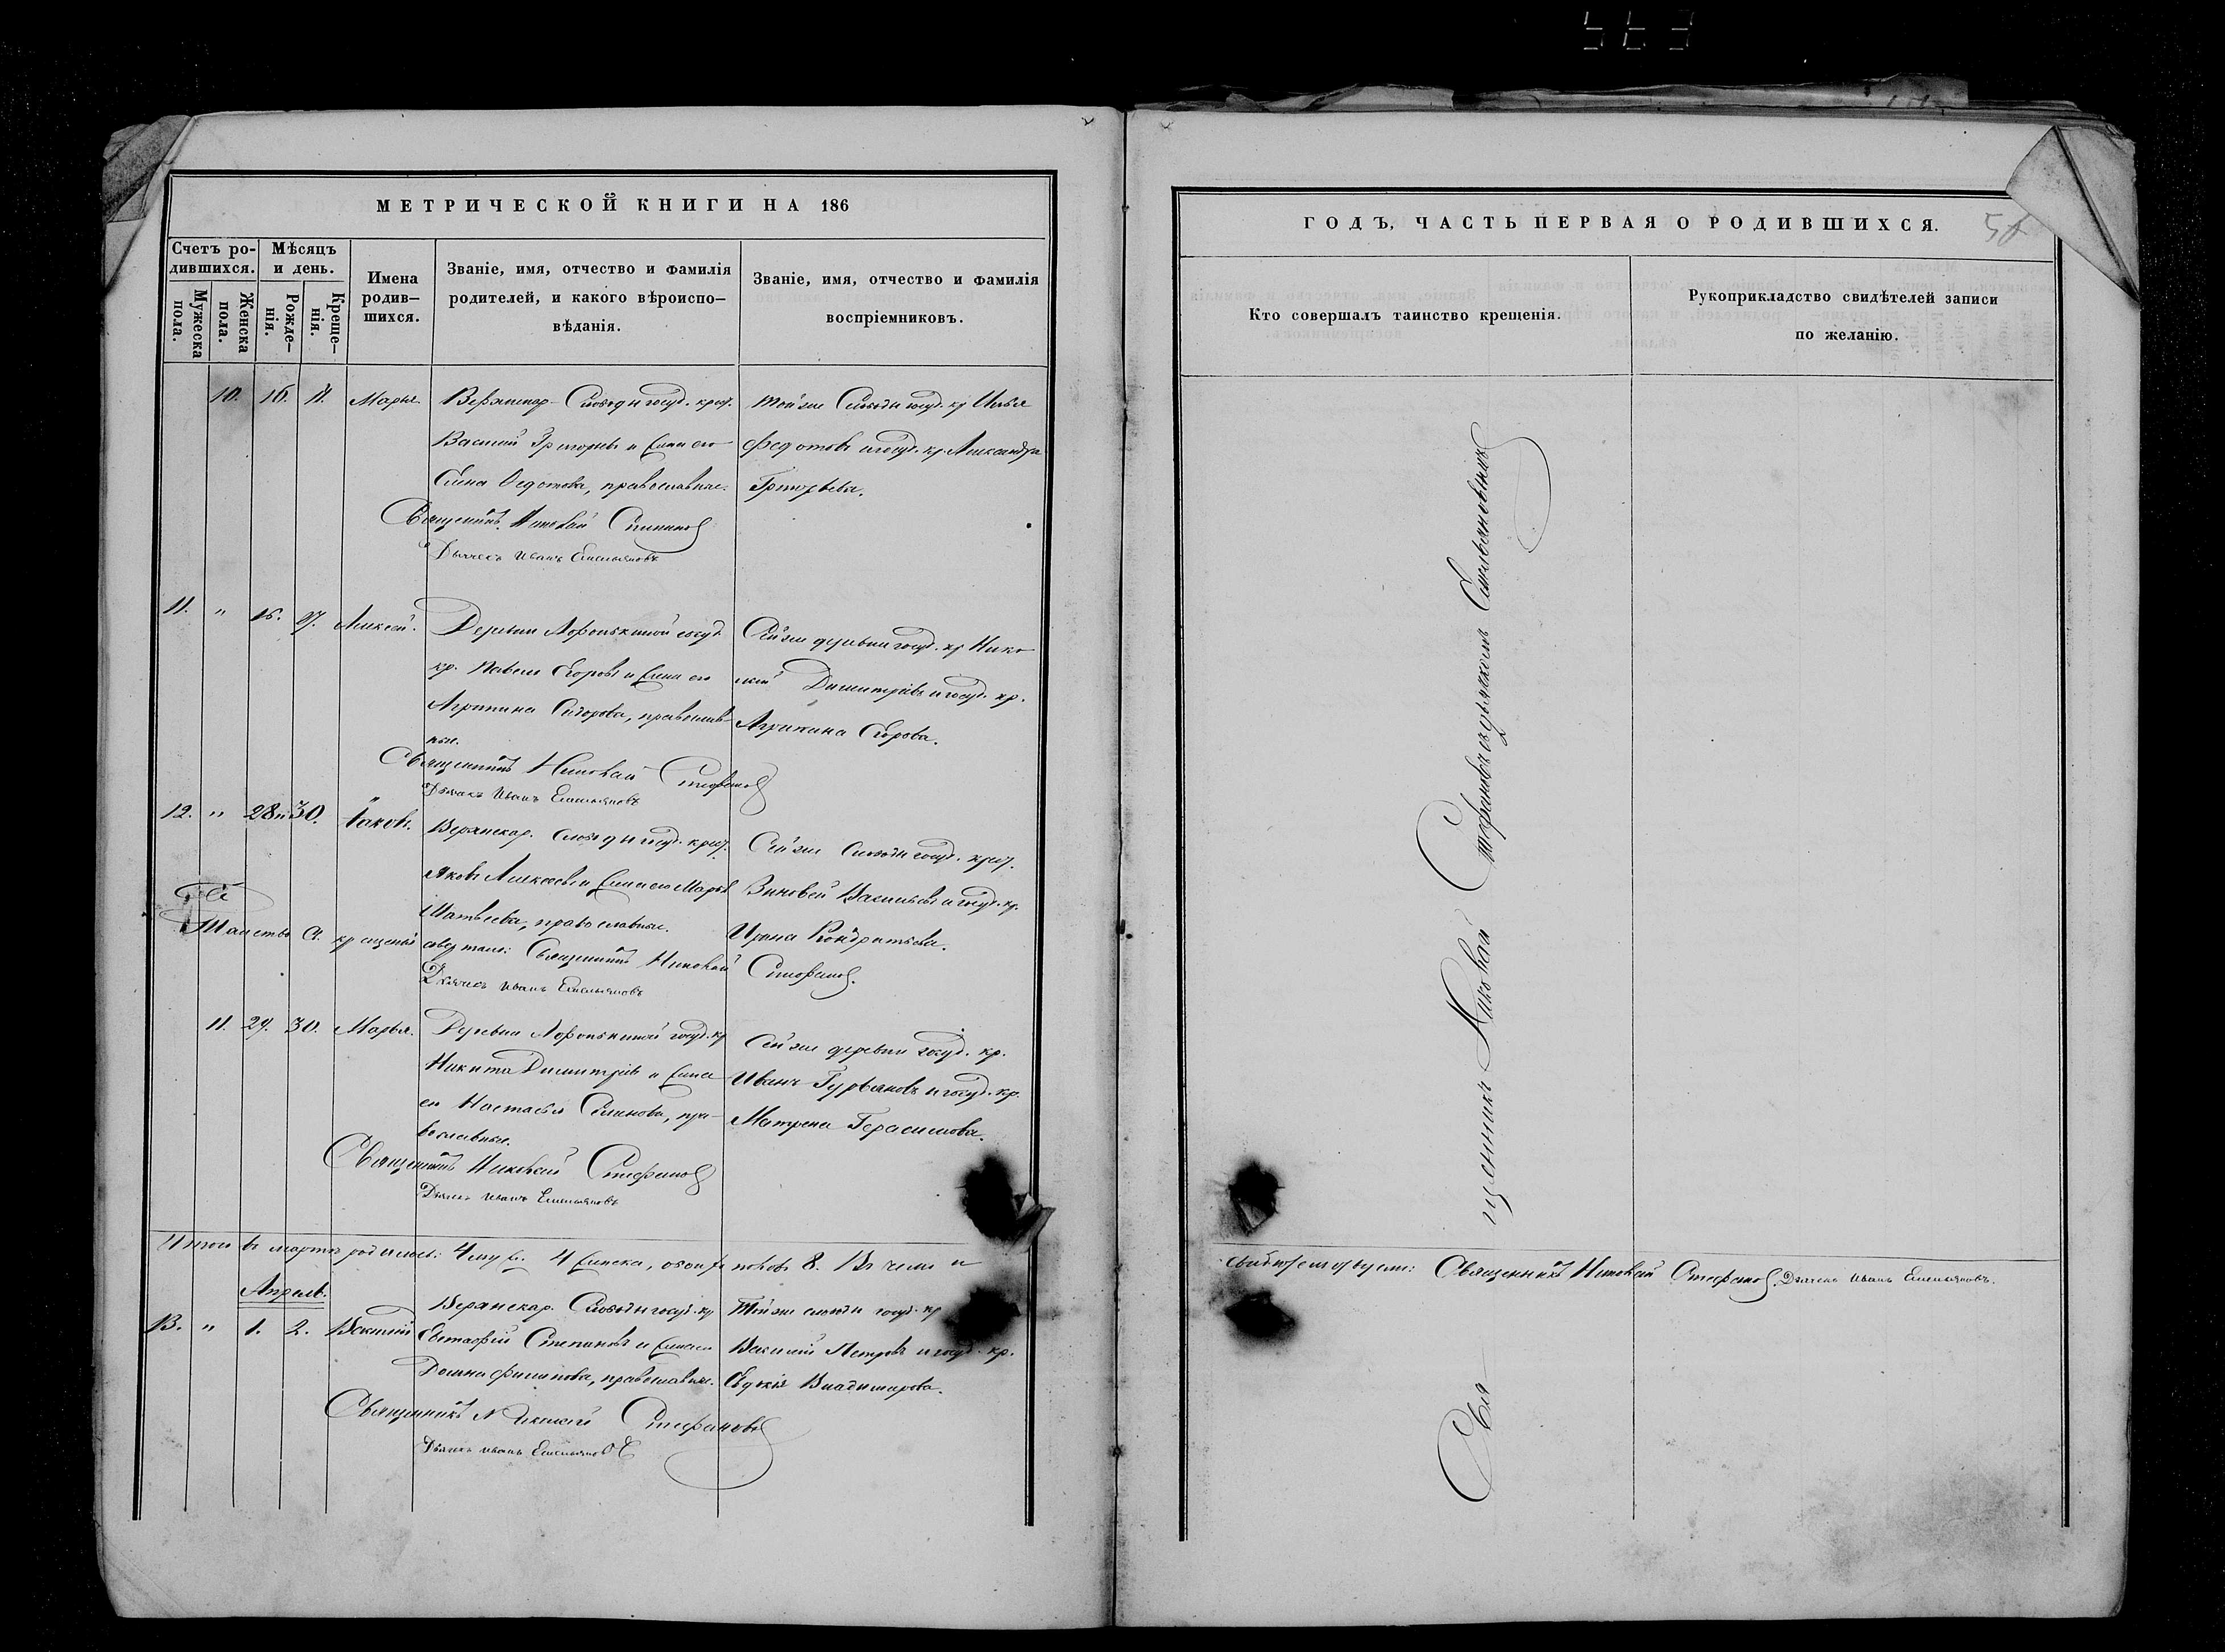 МЕТРИЧЕСКОЙ КНИГИ НА 186
Счетъ ро-
дившихся.
Мужеска
пола.
Женска
пола.
Мѣсяцъ
и день.
Рожде-
нія.
Креще-
нія.
Имена
родив-
шихся.
Званіе, имя, отчество и фамилія
родителей, и какого вѣроиспо-
вѣданія.
Званіе, имя, отчество и фамилія
воспріемниковъ.
10. 16. Марья. Слободы госуд. крест. Той же Слободы госуд. кр. Илья
Василій Григорьевъ и жена его Федотовъ и госуд. кр. Александра
Елена Федотова, православные. Григорьева.
Священникъ Николай Стефановъ
Дьячекъ Иванъ Емельяновъ
11. " 16. 17. Алексей. Деревни госуд. Сей же деревни госуд. кр. Нико
кр. Павелъ Егоровъ и жена его лай Димитріевъ и госуд. кр.
Агрипина Сидорова, православ- Агрипина Егорова.
ные.
Священникъ Николай Стефановъ
Дьячекъ Иванъ Емельяновъ
12. " 28. 30. Іаковъ. слободы госуд. крест. Сей же слободы госуд. крест.
Яковъ Алексеевъ и жена его Марья Зиновей Васильевъ и госуд. кр.
Матвеева, православные. Ирина Кондратьева.
Таинство крещенія Священникъ Николай Стефановъ.
Дьячекъ Иванъ Емельяновъ
11. 29. 30. Марья. Деревни госуд. кр. Сей же деревни госуд. кр.
Никита Димитріевъ и жена Иванъ Гурьяновъ и госуд. кр.
ея Настасья Семенова, пра- Матрена Герасимова.
вославные.
Священникъ Николай Стефановъ
Дьячекъ Иванъ Емельяновъ
Итого въ мартѣ родилось: 4 муж. 4 женска, обоихъ половъ 8. Въ чемъ и
Апрель.
13. " 1. 2. Василій Слободы госуд. кр. Той же слободы госуд. кр.
Евстафій Степановъ и жена Василій Петровъ и госуд. кр.
Домна Филипова, православные. Евдокія Владимирова.
Священникъ Николай Стефановъ
Дьячекъ Иванъ Емельяновъ
ГОДЪ, ЧАСТЬ ПЕРВАЯ О РОДИВШИХСЯ.
Кто совершалъ таинство крещенія.
Рукоприкладство свидѣтелей записи
по желанію.
Священникъ Николай Стефановъ съ дьячкомъ Емельяновымъ
свидѣтельствуемъ: Священникъ Николай Стефановъ. Дьячекъ Иванъ Емельяновъ.